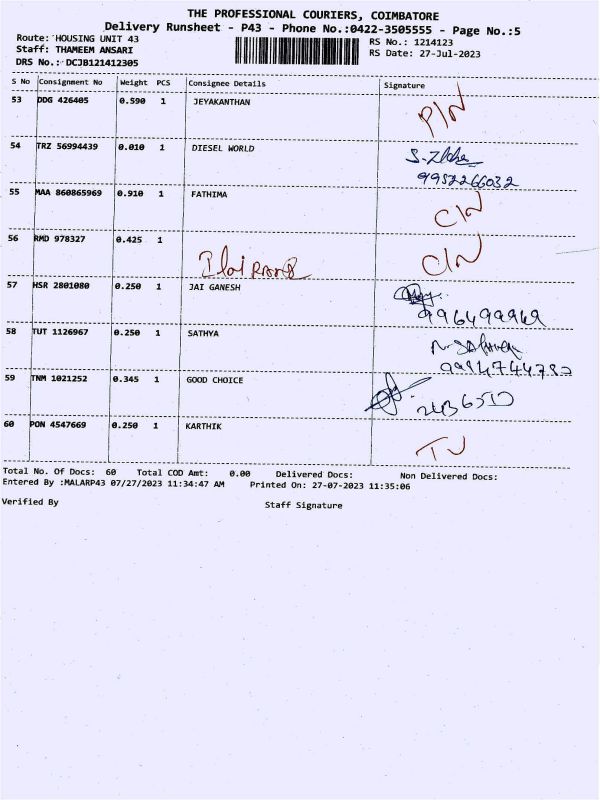 THE PROFESSIONAL COURIERS, COIMBATORE
Delivery Runsheet - P43 - Phone No.:0422-3505555 - Page No.:5
Route: HOUSING UNIT 43 RS No.: 1214123
Staff: THAMEEM ANSARI RS Date: 27-Jul-2023
DRS No.: DCJB121412305
S No Consignment No Weight PCS Consignee Details Signature
53 DDG 426405 0.590 1 JEYAKANTHAN P/N
54 TRZ 56994439 0.010 1 DIESEL WORLD
9952266032
55 MAA 860865969 0.910 1 FATHIMA C/N
56 RMD 978327 0.425 1 C/N
57 HSR 2801080 0.250 1 JAI GANESH
996499969
58 TUT 1126967 0.250 1 SATHYA
59 TNM 1021252 0.345 1 GOOD CHOICE
60 PON 4547669 0.250 1 KARTHIK
Total No. Of Docs: 60 Total COD Amt: 0.00 Delivered Docs: Non Delivered Docs:
Entered By :MALARP43 07/27/2023 11:34:47 AM Printed On: 27-07-2023 11:35:06
Verified By Staff Signature